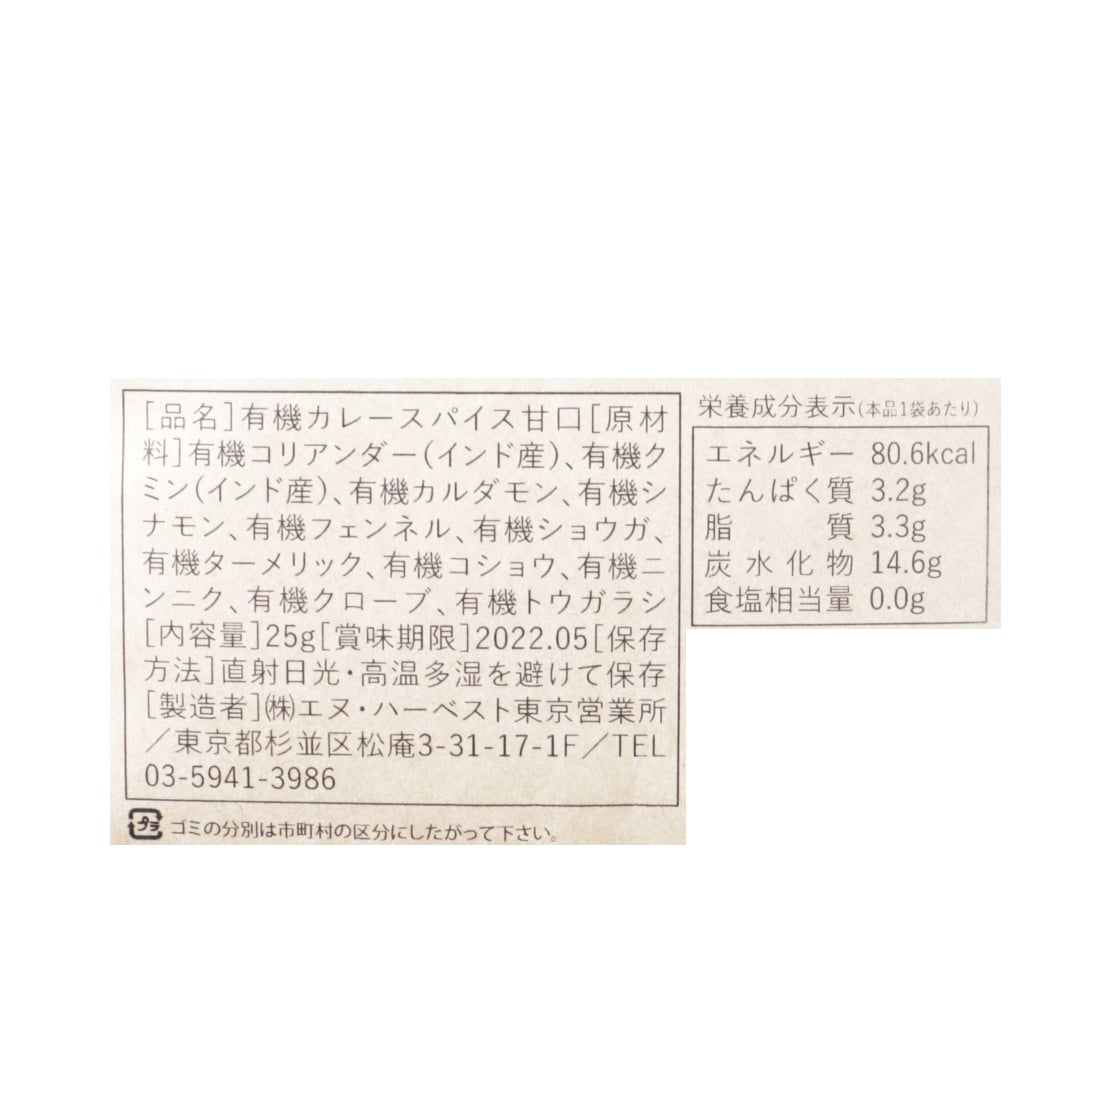 [品名]有機カレースパイス甘口[原材
料]有機コリアンダー(インド産)、有機ク
ミン(インド産)、有機カルダモン、有機シ
ナモン、有機フェンネル、有機ショウガ、
有機ターメリック、有機コショウ、有機ニ
ンニク、有機クローブ、有機トウガラシ
[内容量]25g[賞味期限]2022.05[保存
方法]直射日光・高温多湿を避けて保存
[製造者]㈱エヌ・ハーベスト東京営業所
／東京都杉並区松庵3-31-17-1F／TEL
03-5941-3986
プラ ゴミの分別は市町村の区分にしたがって下さい。
栄養成分表示(本品1袋あたり)
エネルギー 80.6kcal
たんぱく質 3.2g
脂質 3.3g
炭水化物 14.6g
食塩相当量 0.0g